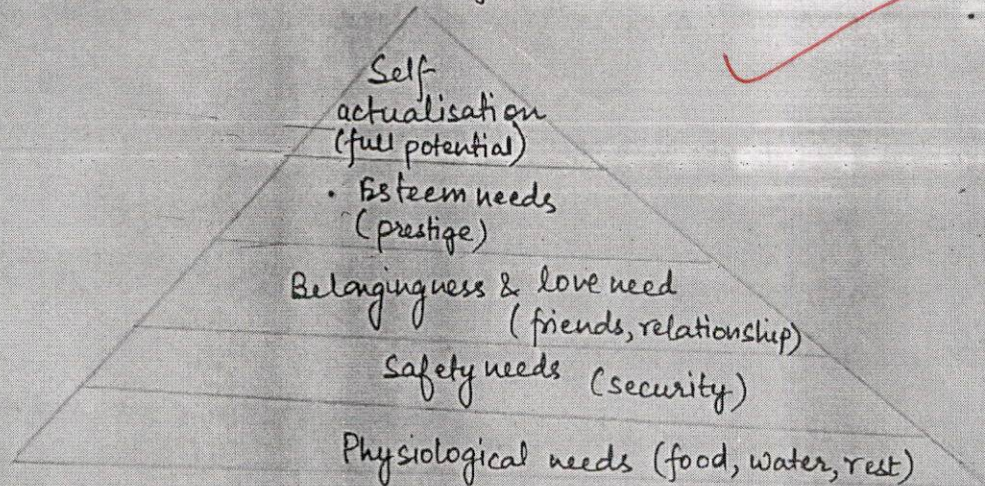 Self-
actualisation
(full potential)
• Esteem needs
(prestige)
Belongingness & love need
(friends, relationship)
Safety needs (security)
Physiological needs (food, water, rest)